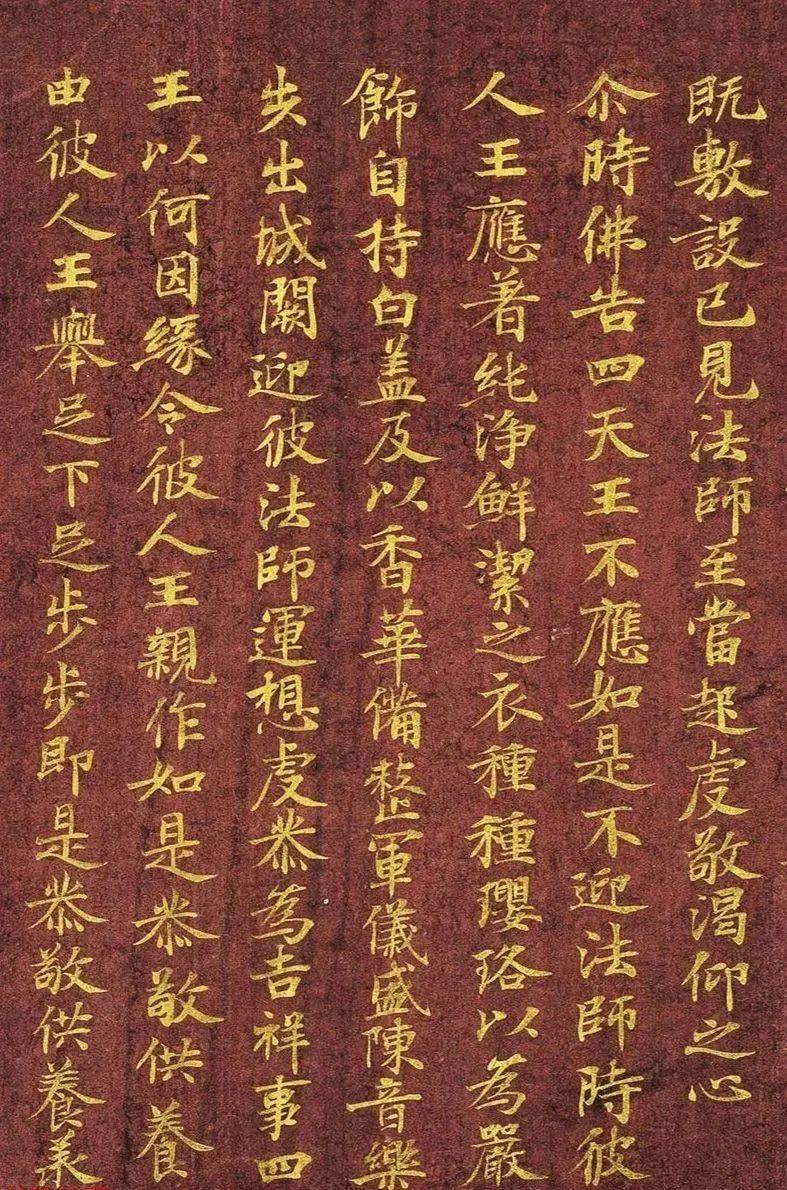 既敷設已見法師至當起虔敬渴仰之心
尒時佛告四天王不應如是不迎法師時彼
人王應著純淨鮮潔之衣種種瓔珞以為嚴
飾自持白盖及以香華備整軍儀盛陳音樂
步出城闕迎彼法師運想虔恭為吉祥事四
王以何因緣令彼人王親作如是恭敬供養
由彼人王舉足下足步步即是恭敬供養承